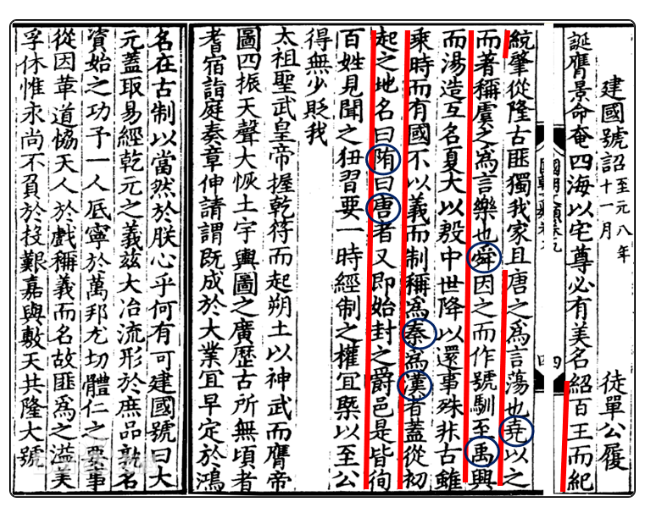 建國號詔至元八年十一月 徒單公履
誕膺景命奄四海以宅尊必有美名紹百王而紀
四
統肇從隆古匪獨我家且唐之為言蕩也堯以之
而著稱虞之為言樂也舜因之而作號馴至禹興
而湯造互名夏大以殷中世降以還事殊非古雖
乘時而有國不以義而制稱為秦為漢者蓋從初
起之地名曰隋曰唐者又即始封之爵邑是皆徇
百姓見聞之狃習要一時經制之權宜槩以至公
得無少貶我
太祖聖武皇帝握乾符而起朔土以神武而膺帝
圖四振天聲大恢土宇輿圖之廣歷古所無頃者
耆宿詣庭奏章伸請謂既成於大業宜早定於鴻
名在古制以當然於朕心乎何有可建國號曰大
元蓋取易經乾元之義茲大冶流形於庶品孰名
資始之功予一人底寧於萬邦尤切體仁之要事
從因革道協天人於戲稱義而名故匪為之溢美
孚休惟永尚不負於投艱嘉與敷天共隆大號